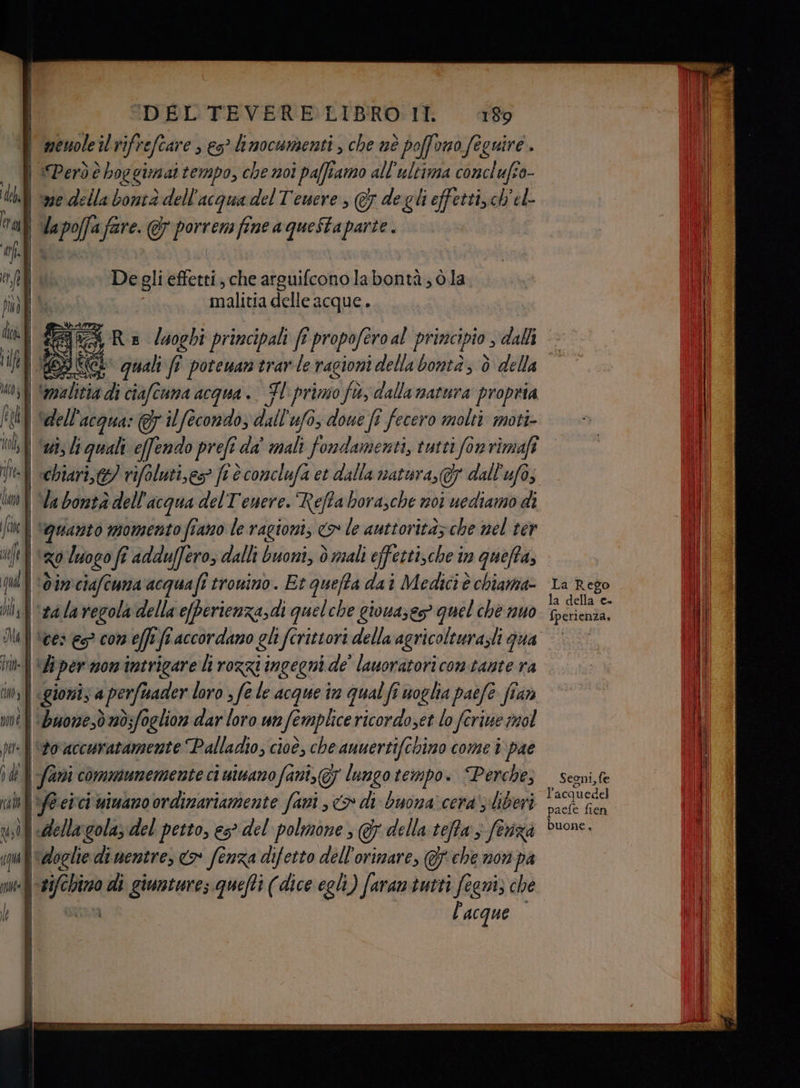 DEL TEVERE LIBRO II. 189
neuole il rifreſcare, & li nocumenti, che nè poſſono ſeguire.
Però è hoggimai tempo, che noi paſſiamo all'ultima concluſio-
ne della bontà dell'acqua del Teuere, & de gli effetti, ch'el-
la poſſa fare. & porrem fine a queſta parte.
De gli effetti, che arguiſcono la bontà, ò la
malitia delle acque.
TRe luoghi principali ſi propoſero al principio, dalli
quali ſi poteuan trar le ragioni della bontà, ò della
malitia di ciaſcuna acqua. Il primo fù, dalla natura propria
dell'acqua: & il ſecondo, dall'uſo, doue ſi fecero molti moti-
ui, li quali eſſendo preſi da' mali fondamenti, tutti ſon rimaſi
chiari, & riſoluti, & ſi è concluſa et dalla natura, & dall'uſo,
la bontà dell'acqua del Teuere. Reſta hora, che noi uediamo di
quanto momento ſiano le ragioni, & le auttorità, che nel ter
zo luogo ſi adduſſero, dalli buoni, ò mali effetti, che in queſta,
ò in ciaſcuna acqua ſi trouino. Et queſta da i Medici è chiama-
ta la regola della eſperienza, di quel che gioua, & quel che nuo
ce: & con eſſi ſi accordano gli ſcrittori della agricoltura, li qua
li per non intrigare li rozzi ingegni de' lauoratori con tante ra
gioni, a perſuader loro, ſe le acque in qual ſi uoglia paeſe ſian
buone, ò nò, ſoglion dar loro un ſemplice ricordo, et lo ſcriue mol
to accuratamente Palladio, cioè, che auuertiſchino come i pae
ſani communemente ci uiuano ſani, & lungo tempo. Perche,
ſe ei ci uiuano ordinariamente ſani, & di buona cera, liberi
della gola, del petto, & del polmone, & della teſta, ſenza
doglie di uentre, & ſenza difetto dell'orinare, & che non pa
tiſchino di giunture; queſti (dice egli) ſaran tutti ſegni, che
l'acque
La Rego
la della e-
ſperienza.
Segni, ſe
l'acque del
paeſe ſien
buone.